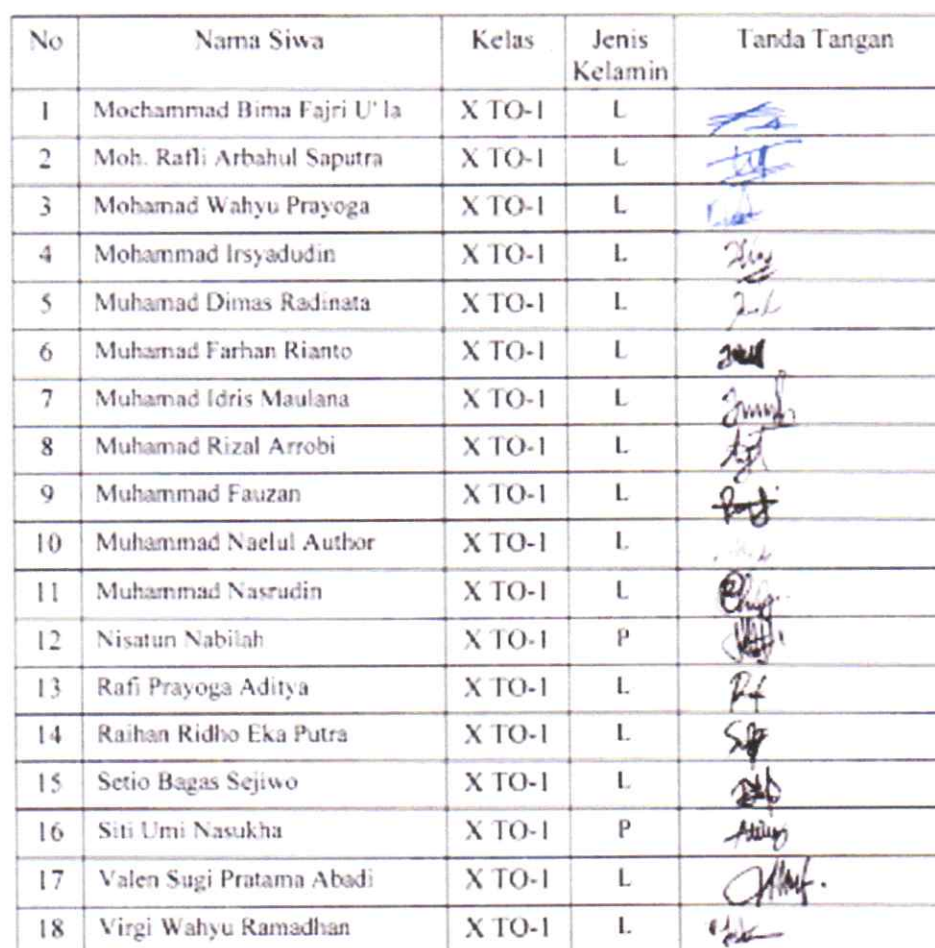 No Nama Siwa Kelas Jenis Kelamin Tanda Tangan
1 Mochammad Bima Fajri U'la X TO-1 L
2 Moh. Rafli Arbahul Saputra X TO-1 L
3 Mohamad Wahyu Prayoga X TO-1 L
4 Mohammad Irsyadudin X TO-1 L
5 Muhamad Dimas Radinata X TO-1 L
6 Muhamad Farhan Rianto X TO-1 L
7 Muhamad Idris Maulana X TO-1 L
8 Muhamad Rizal Arrobi X TO-1 L
9 Muhammad Fauzan X TO-1 L
10 Muhammad Naelul Author X TO-1 L
11 Muhammad Nasrudin X TO-1 L
12 Nisatun Nabilah X TO-1 P
13 Rafi Prayoga Aditya X TO-1 L
14 Raihan Ridho Eka Putra X TO-1 L
15 Setio Bagas Sejiwo X TO-1 L
16 Siti Umi Nasukha X TO-1 P
17 Valen Sugi Pratama Abadi X TO-1 L
18 Virgi Wahyu Ramadhan X TO-1 L